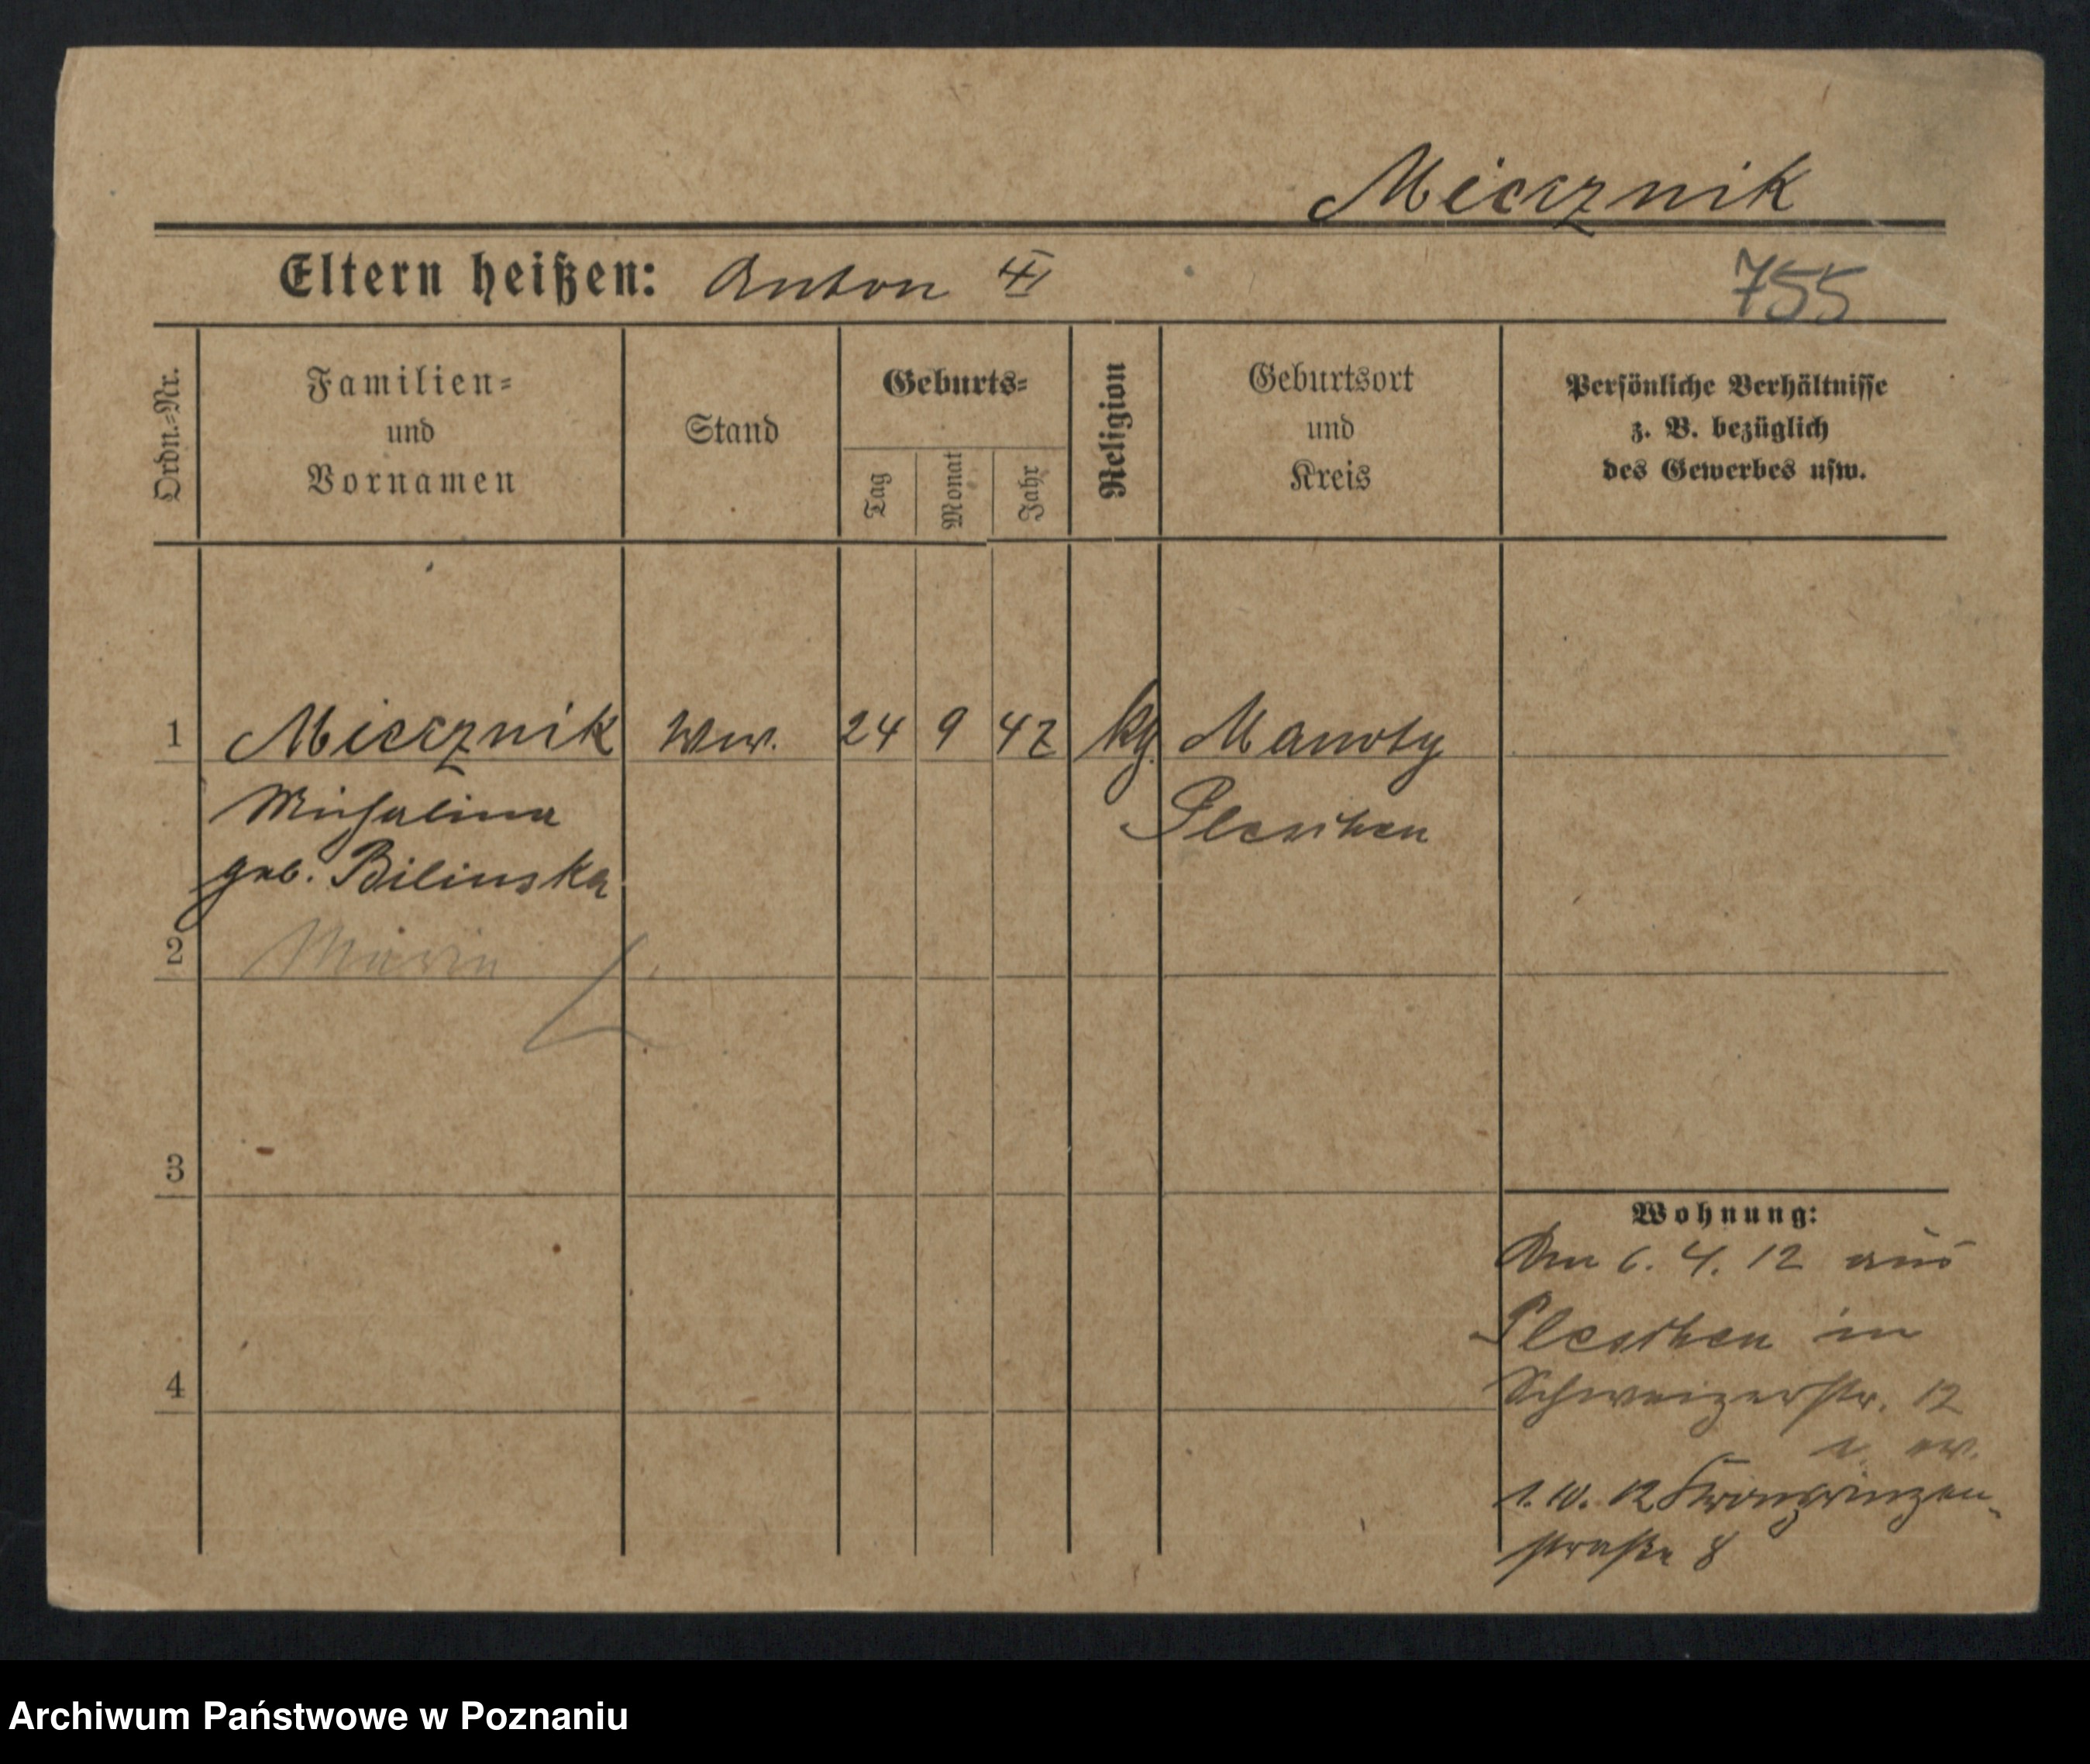 Miecznik
Eltern heißen: Anton
755
Ordn.-Nr.
Familien-
und
Vornamen
Stand
Geburts-
Tag
Monat
Jahr
Religion
Geburtsort
und
Kreis
Persönliche Verhältnisse
z. B. bezüglich
des Gewerbes usw.
1 Miecznik Ww. 24 9 42 Manoty
Michalina Pleschen
geb. Bilinska
2 Maria
3
Wohnung:
Am 6. 4. 12 aus
Pleschen in
4 Schweizerstr. 12
1. 10. 12 Kronprinzen-
straße 8
Archiwum Państwowe w Poznaniu